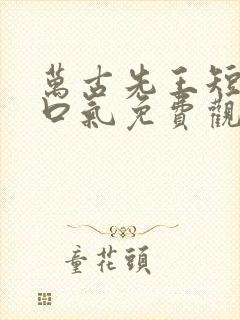 萬古先王短
口氣免費觀
童花頭